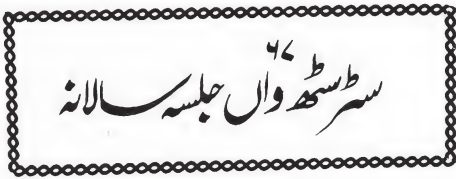 ۶۷
سڑسٹھ واں جلسہ سالانہ